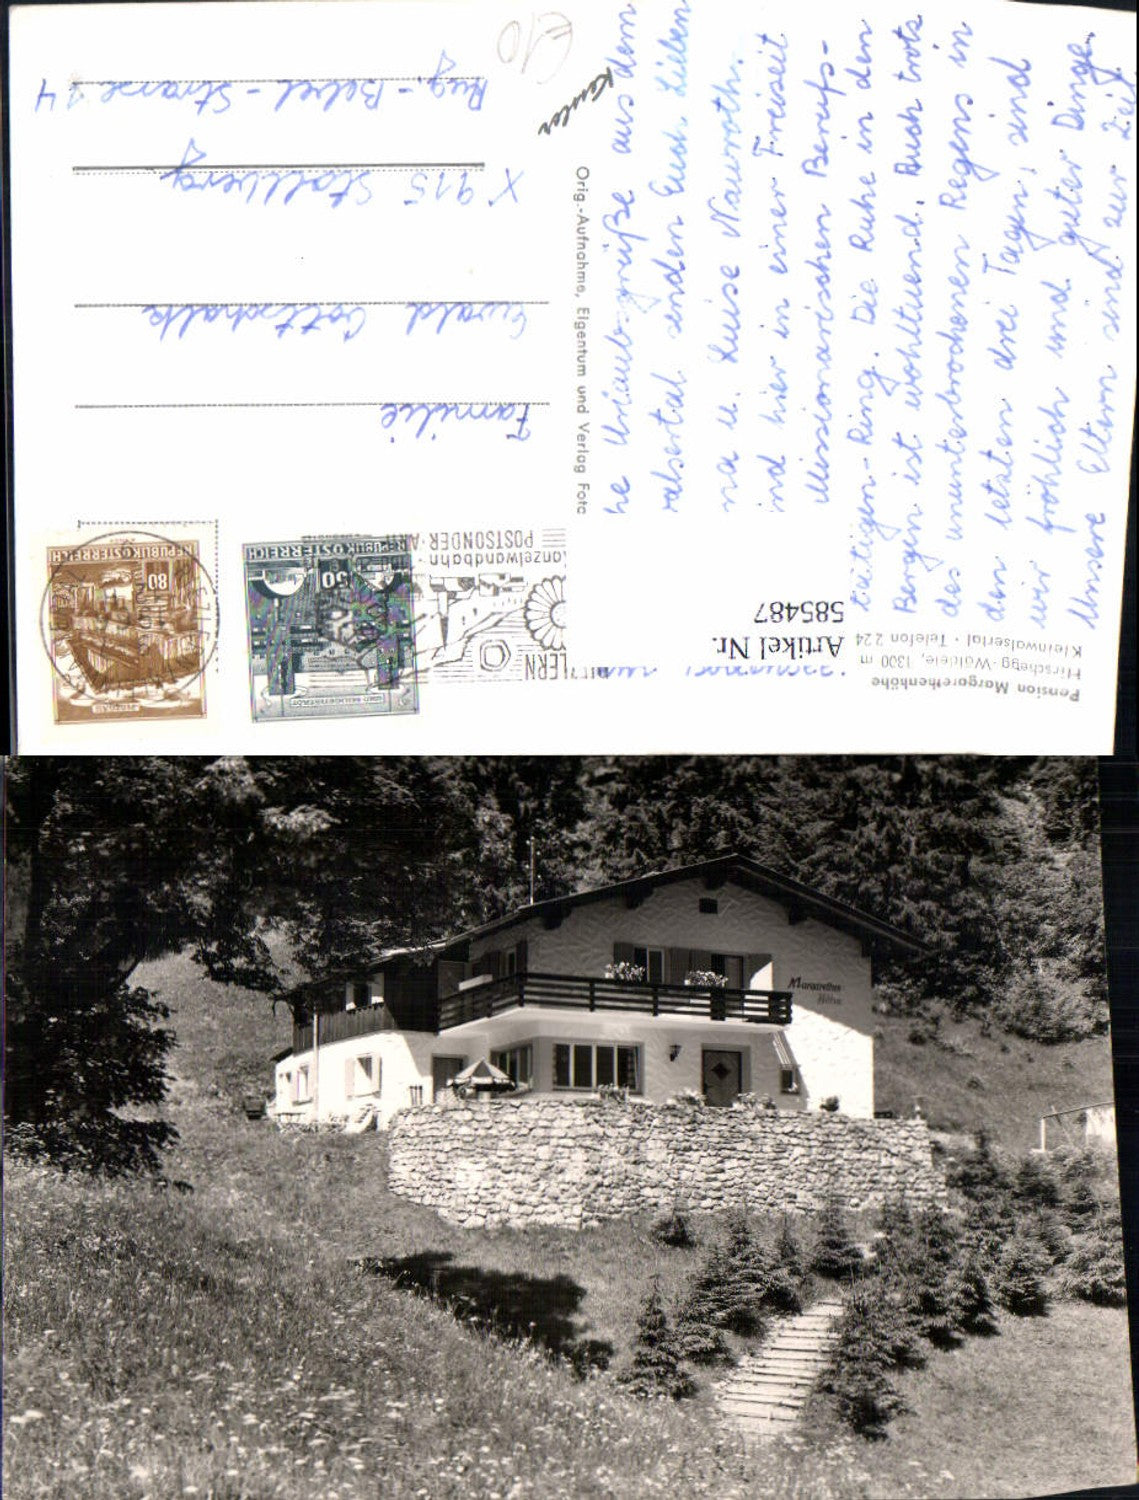 Pension Margarethenhöhe
Hirschegg-Wäldele, 1300 m
Kleinwalsertal · Telefon 2 24
Artikel Nr.
585487
he Urlaubsgrüße aus dem
walsertal senden Euch Lieben
na u. Luise Nawroth.
ind hier in einer Freizeit
Missionarischen Berufs-
tätigen-Ring. Die Ruhe in den
Bergen ist wohltuend. Auch trotz
des ununterbrochenen Regens in
den letzten drei Tagen, sind
wir fröhlich und guter Dinge.
Unsere Eltern sind zur Zeit
Orig.-Aufnahme, Eigentum und Verlag Foto
Kessler
€10
REPUBLIK ÖSTERREICH
80
REPUBLIK ÖSTERREICH
50
ZLERN
anzelwandbahn
POSTSONDER
Familie
Ewald Gottschalk
X 915 Stollberg
Aug.-Bebel-Strasse 14
Margarethen
Höhe